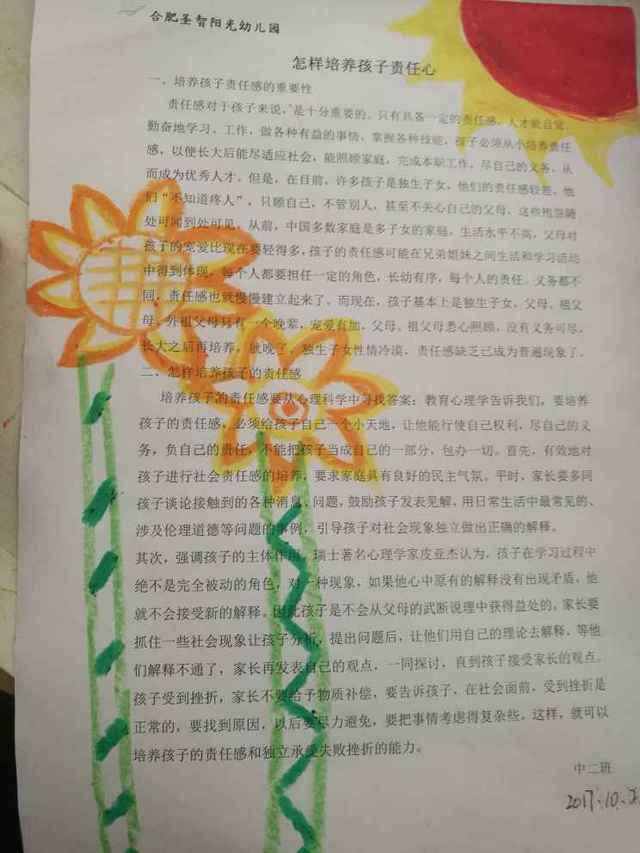 合肥圣智阳光幼儿园
怎样培养孩子责任心
一、培养孩子责任感的重要性
责任感对于孩子来说,是十分重要的。只有具备一定的责任感,人才能自觉、
勤奋地学习、工作,做各种有益的事情、掌握各种技能,孩子必须从小培养责任
感,以便长大后能尽适应社会,能照顾家庭,完成本职工作,尽自己的义务,从
而成为优秀人才。但是,在目前,许多孩子是独生子女,他们的责任感较差,他
们“不知道疼人”,只顾自己,不管别人,甚至不关心自己的父母,这些抱怨随
处可闻到处可见。从前,中国多数家庭是多子女的家庭,生活水平不高,父母对
孩子的宠爱比现在要轻得多,孩子的责任感可能在兄弟姐妹之间生活和学习活动
中得到体现。每个人都要担任一定的角色,长幼有序,每个人的责任、义务都不
同,责任感也就慢慢建立起来了。而现在,孩子基本上是独生子女,父母、祖父
母、外祖父母只有一个晚辈,宠爱有加,父母、祖父母悉心照顾,没有义务可尽,
长大之后再培养,就晚了。独生子女性情冷漠、责任感缺乏已成为普遍现象了。
二、怎样培养孩子的责任感
培养孩子的责任感要从心理科学中寻找答案:教育心理学告诉我们,要培养
孩子的责任感,必须给孩子自己一个小天地,让他能行使自己权利,尽自己的义
务,负自己的责任,不能把孩子当成自己的一部分,包办一切。首先,有效地对
孩子进行社会责任感的培养,要求家庭具有良好的民主气氛。平时,家长要多同
孩子谈论接触到的各种消息、问题,鼓励孩子发表见解,用日常生活中最常见的、
涉及伦理道德等问题的事例,引导孩子对社会现象独立做出正确的解释。
其次,强调孩子的主体作用。瑞士著名心理学家皮亚杰认为,孩子在学习过程中
绝不是完全被动的角色,对一种现象,如果他心中原有的解释没有出现矛盾,他
就不会接受新的解释。因此孩子是不会从父母的武断说理中获得益处的。家长要
抓住一些社会现象让孩子分析,提出问题后,让他们用自己的理论去解释,等他
们解释不通了,家长再发表自己的观点,一同探讨,直到孩子接受家长的观点。
孩子受到挫折,家长不要给予物质补偿,要告诉孩子,在社会面前,受到挫折是
正常的,要找到原因,以后要尽力避免,要把事情考虑得复杂些。这样,就可以
培养孩子的责任感和独立承受失败挫折的能力。
中二班
2017.10.